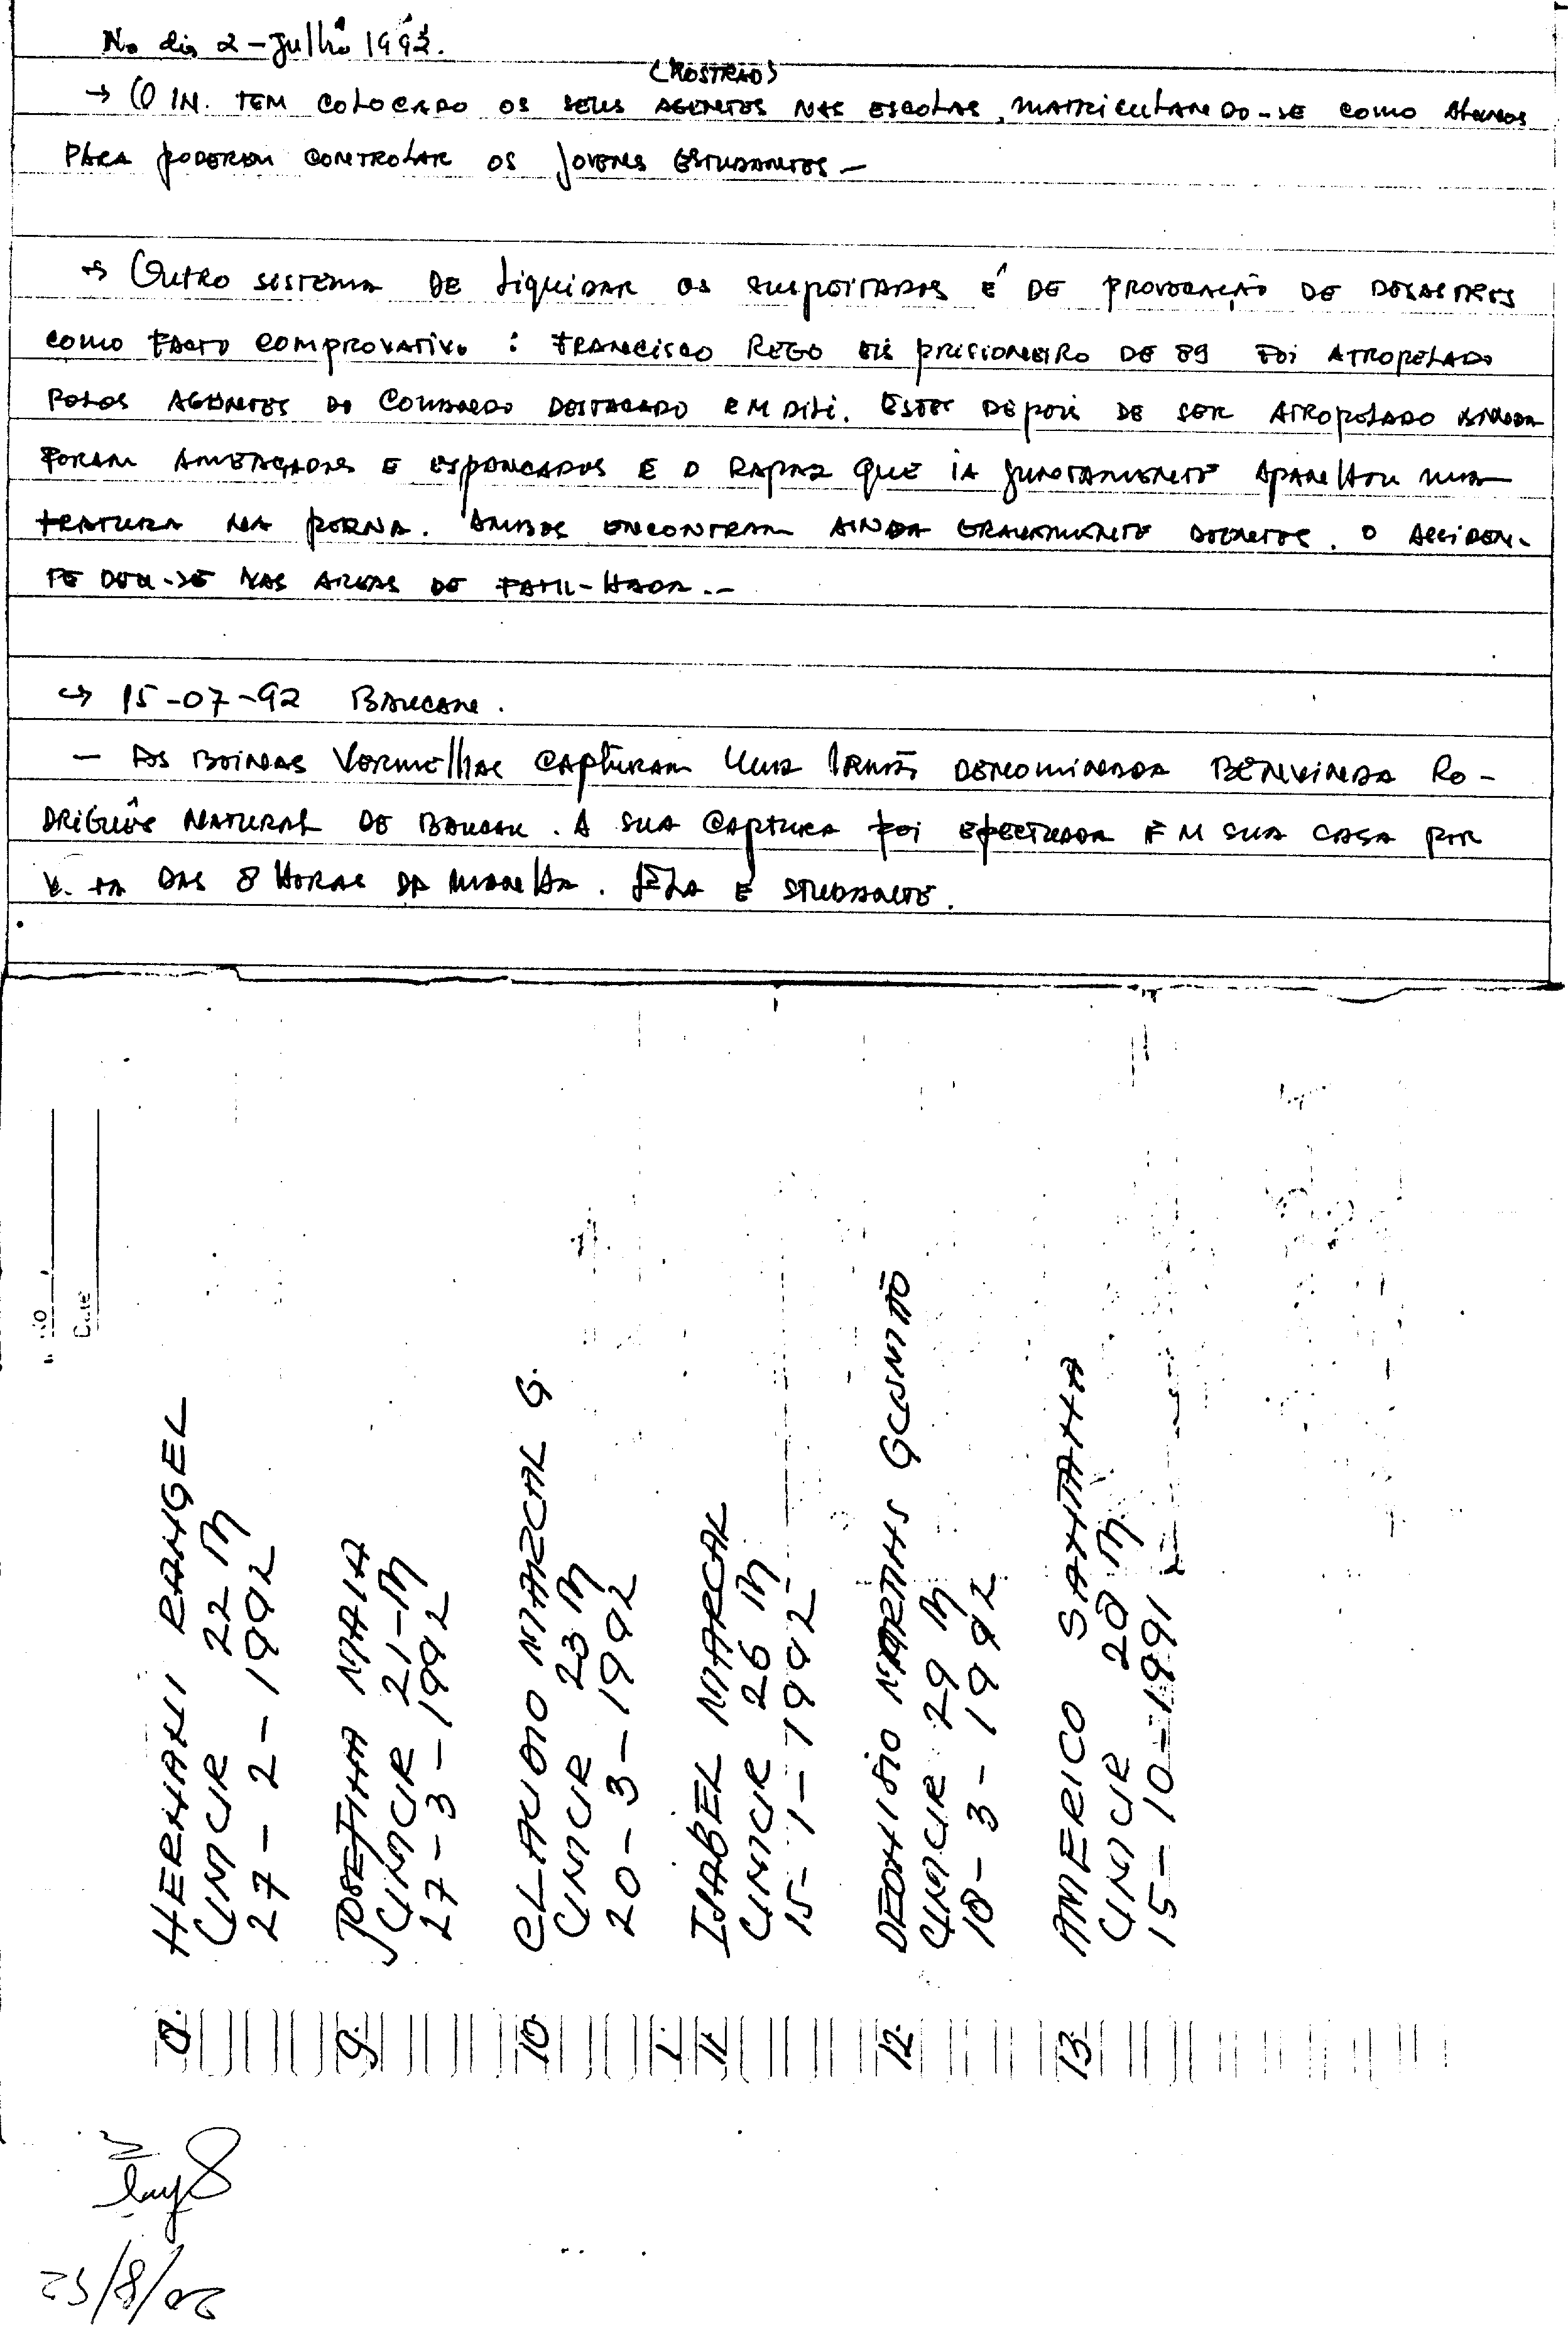 No dia 2 - Julho 1992.
(MOSTRAD)
→ O IN. TEM COLOCADO OS SEUS AGENTES NAS ESCOLAS, MATRICULANDO-SE COMO ALUNOS
PARA PODEREM CONTROLAR OS JOVENS ESTUDANTES —
→ OUTRO SISTEMA DE LIQUIDAR OS SUSPEITADOS É DE PROVOCAÇÃO DE DESASTRES
COMO FACTO COMPROVATIVO : FRANCISCO REGO EIS PRISIONEIRO DE 89 FOI ATROPELADO
PELOS AGENTES DO COMANDO DESTACADO EM DILI. ESTES DEPOIS DE SER ATROPELADO AINDA
FORAM AMEAÇADOS E ESPANCADOS E O RAPAZ QUE IA JUNTAMENTE APANHOU UMA
FRATURA NA PERNA. AMBOS ENCONTRAM AINDA GRAVEMENTE DOENTES. O ACCIDEN-
TE DEU-SE NAS AREAS DE FATU-HADA.-
→ 15-07-92 BAUCAU.
— AS BOINAS VERMELHAS CAPTURAM UMA IRMÃ DENOMINADA BENVINDA RO-
DRIGUÊS NATURAL DE BAUCAU. A SUA CAPTURA FOI EFECTUADA EM SUA CASA POR
V. TA DAS 8 HORAS DA MANHA. ELA E STUDANTE.
NO
Date
8. HERNANI RANGEL
UMUR 22 M
27 - 2 - 1992
9. JOSEFINA MAIA
UMUR 21-M
27-3-1992
10. CLAUDIO MARCAL G.
UMUR 23 M
20-3-1992
11. ISABEL MARCAL
UMUR 26 M
15-1-1992
12. DEONISIO MARTINS GUSMÃO
UMUR 29 M
18-3-1992
13. AMERICO SANTANA
UMUR 20 M
15-10-1991